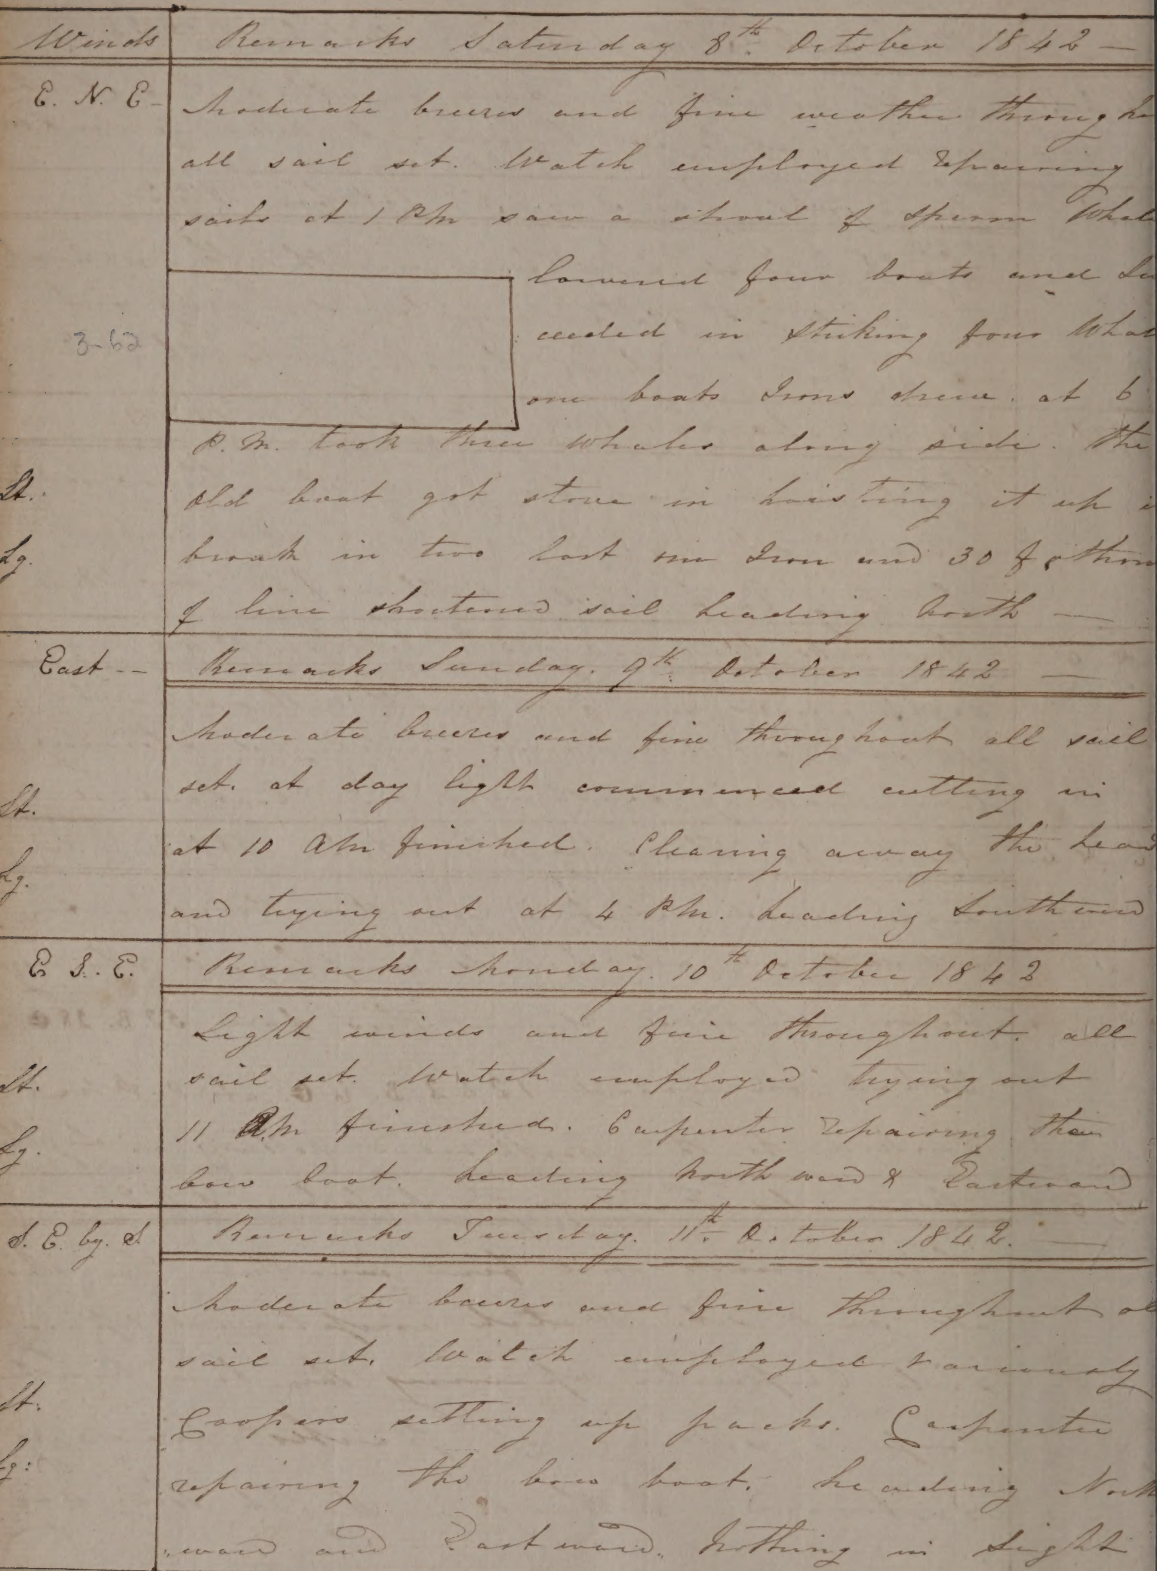 Winds Remarks Saturday 8th October 1842 —
E. N. E- Moderate breezes and fine weather through
all sail set. Watch employed repairing
sails at 1 PM saw a shoal of Sperm Whale
lowered four boats and Su
3-62 ceeded in striking four Whal
one boats Irons drew. at 6
P.M. took three whales along side. the
Lt. old boat got stove in hoisting it up
Lg. broak in two lost one Iron and 30 fathom
of line shortened sail heading North —
East -- Remarks Sunday. 9th October 1842 —
Moderate breezes and fine throughout all sail
Lt. set. at day light commenced cutting in
at 10 AM finished. Clearing away the head
Lg. and trying out at 4 PM. heading Southward
E S. E. Remarks Monday. 10th October 1842
Light winds and fine throughout. all
Lt. sail set. Watch employed trying out
11 A.M finished. Carpenter repairing the
Lg. bow boat. heading North ward & Eastward
S. E. by. S Remarks Tuesday. 11th. October 1842. —
Moderate breezes and fine throughout al
sail set. Watch employed variously
Lt. Coopers setting up packs. Carpenter
Lg: repairing the bow boat. heading North
ward and Eastward. Nothing in Sight